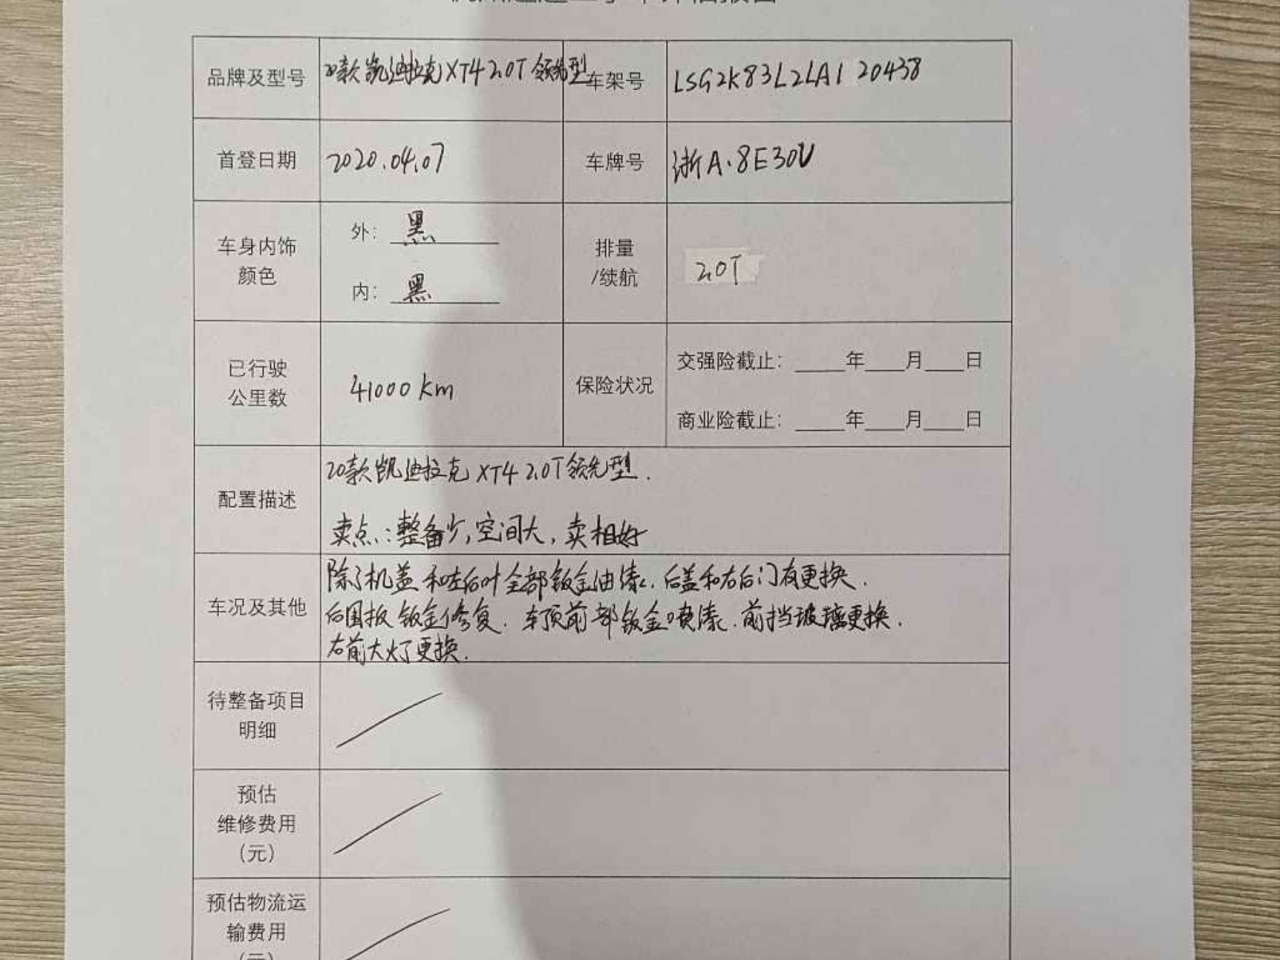 品牌及型号 20款凯迪拉克XT4 2.0T领先型 车架号 LSG2K83L2LA120438
首登日期 2020.04.07 车牌号 浙A·8E30U
车身内饰
颜色
外: 黑
内: 黑
排量
/续航
2.0T
已行驶
公里数
41000km
保险状况
交强险截止: ____年___月___日
商业险截止: ____年___月___日
配置描述
20款凯迪拉克XT4 2.0T领先型.
卖点:整备少,空间大,卖相好
车况及其他
除了机盖和左后叶全部钣金油漆.后盖和右后门有更换.
后围板钣金修复.车顶前部钣金喷漆.前挡玻璃更换.
右前大灯更换.
待整备项目
明细
预估
维修费用
(元)
预估物流运
输费用